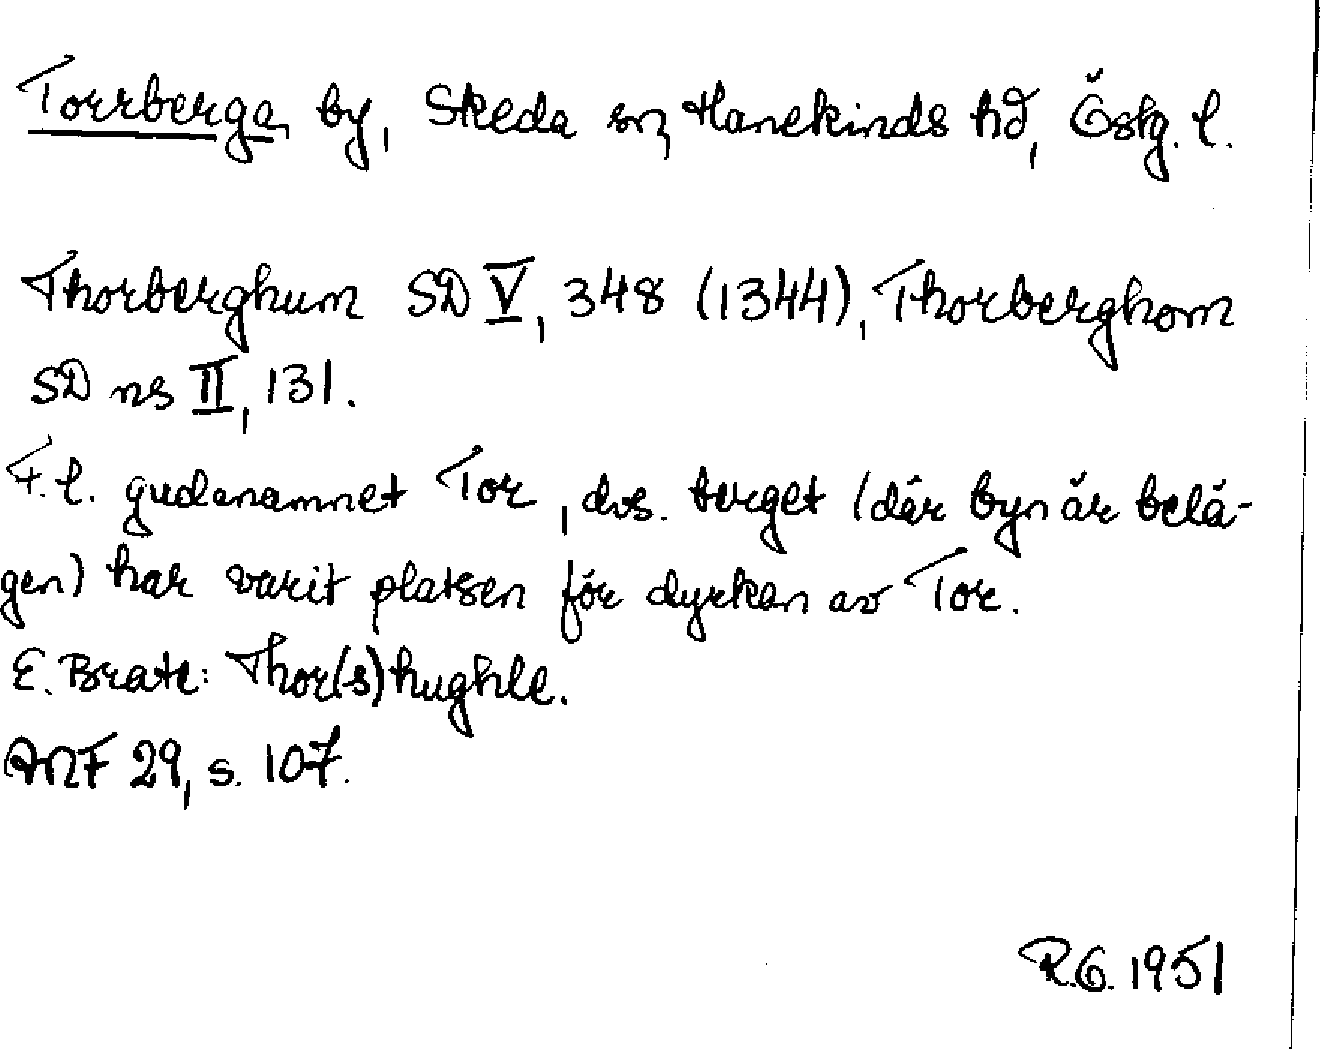 Torrberga by, Skeda sn, Hanekinds hd, Östg. l.
Thorberghum SD V, 348 (1344), Thorberghom
SD ns II, 131.
F.l. gudanamnet Tor, dvs. berget (där byn är belä-
gen) har varit platsen för dyrkan av Tor.
E. Brate: Thor(s)hughle.
ANF 29, s. 107.
R.G. 1951